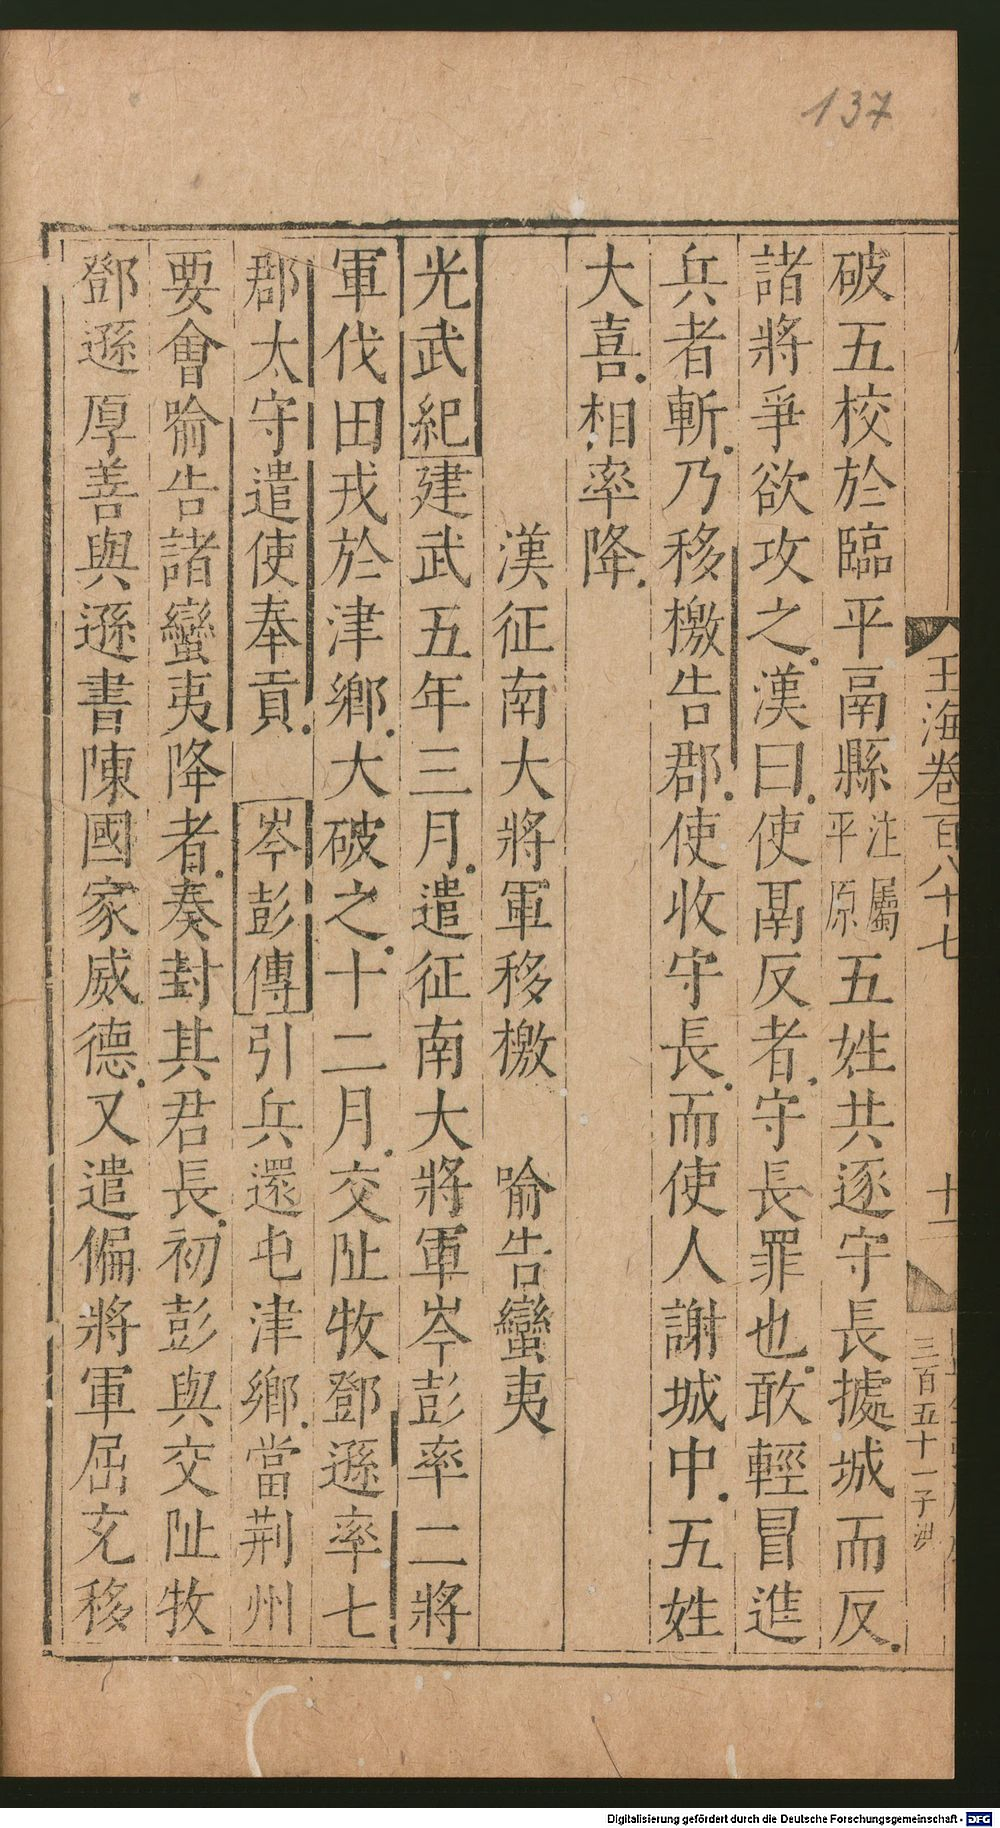 137
玉海卷百八十七
十二
三百五十一子
破五校於臨平鬲縣注屬平原五姓共逐守長據城而反
諸將爭欲攻之漢曰使鬲反者守長罪也敢輕冒進
兵者斬乃移檄告郡使收守長而使人謝城中五姓
大喜相率降
漢征南大將軍移檄 喻告蠻夷
光武紀建武五年三月遣征南大將軍岑彭率二將
軍伐田戎於津鄉大破之十二月交阯牧鄧遜率七
郡太守遣使奉貢 岑彭傳引兵還屯津鄉當荆州
要會喻告諸蠻夷降者奏封其君長初彭與交阯牧
鄧遜厚善與遜書陳國家威德又遣偏將軍屈充移
Digitalisierung gefördert durch die Deutsche Forschungsgemeinschaft - DFG